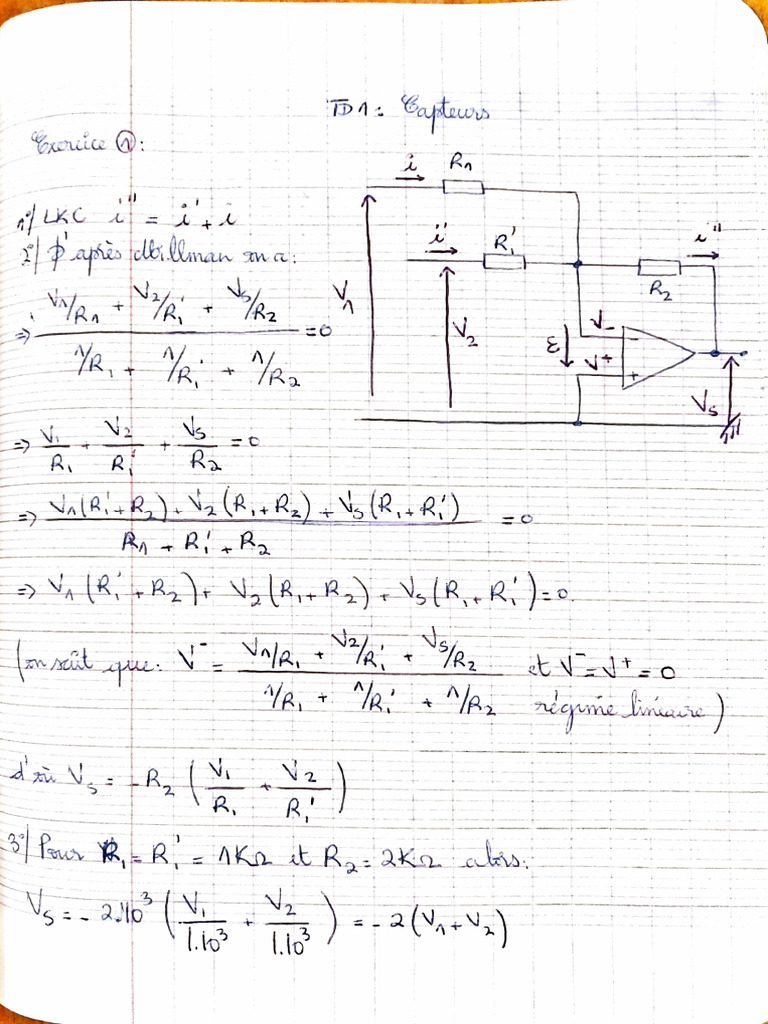 TD1: Capteurs
Exercice ①:
1°/ LKC i'' = i' + i
2°/ D'après Millman on a:
=> (V1/R1 + V2/R1' + Vs/R2) / (1/R1 + 1/R1' + 1/R2) = 0
=> V1/R1 + V2/R1' + Vs/R2 = 0
=> (V1(R1'+R2) + V2(R1+R2) + Vs(R1+R1')) / (R1 + R1' + R2) = 0
=> V1(R1'+R2) + V2(R1+R2) + Vs(R1+R1') = 0.
(on sait que: V⁻ = (V1/R1 + V2/R1' + Vs/R2) / (1/R1 + 1/R1' + 1/R2) et V⁻=V⁺=0
régime linéaire)
d'où Vs = -R2 (V1/R1 + V2/R1')
3°/ Pour R1 = R1' = 1KΩ et R2 = 2KΩ alors:
Vs = - 2.10³ (V1/1.10³ + V2/1.10³) = - 2(V1+V2)
i
R1
i'
R1'
i''
R2
V1
V2
ε
V-
V+
-
+
Vs